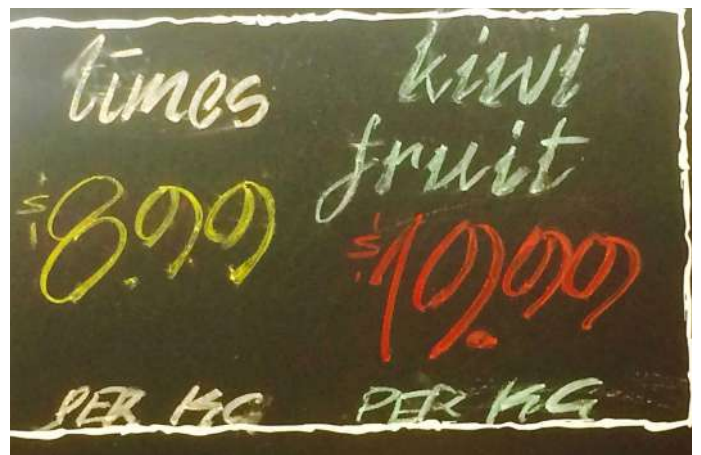 limes
$8.99
PER KG
kiwi
fruit
$19.99
PER KG